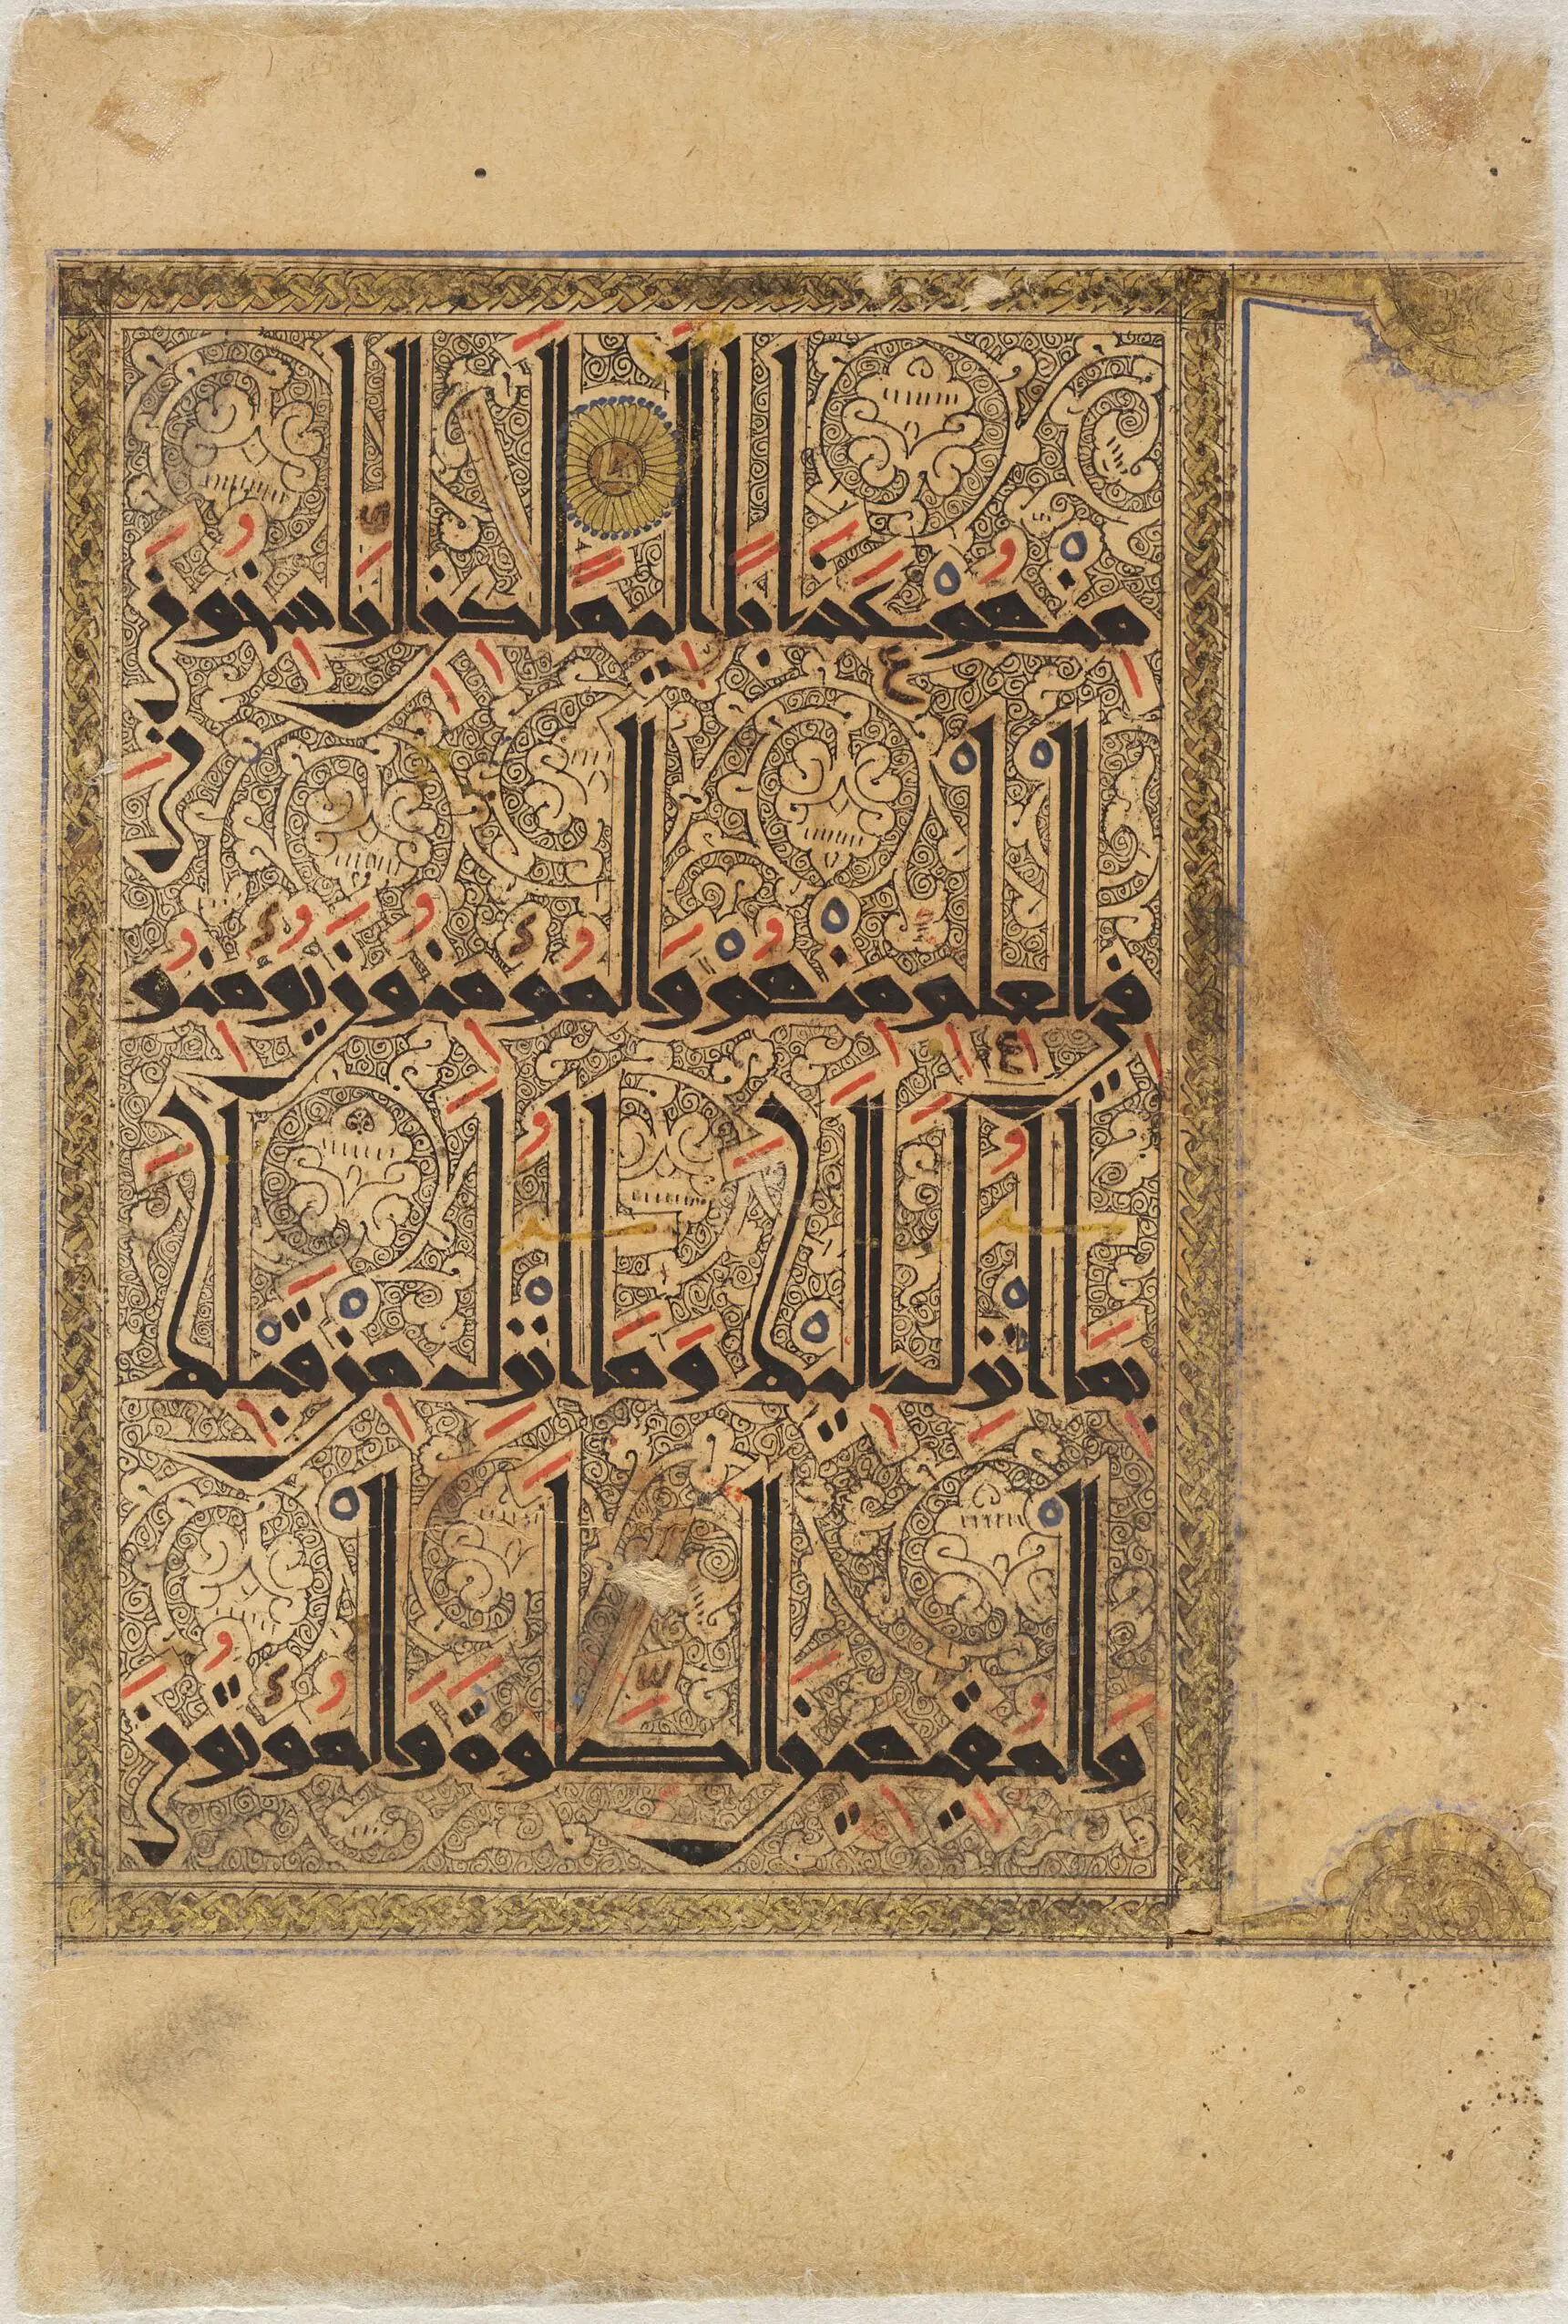 منهم عذابا اليما لكن الراسخون
في العلم منهم والمومنون يومنون
بما انزل اليك وما انزل من قبلك
والمقيمين الصلوة والموتون